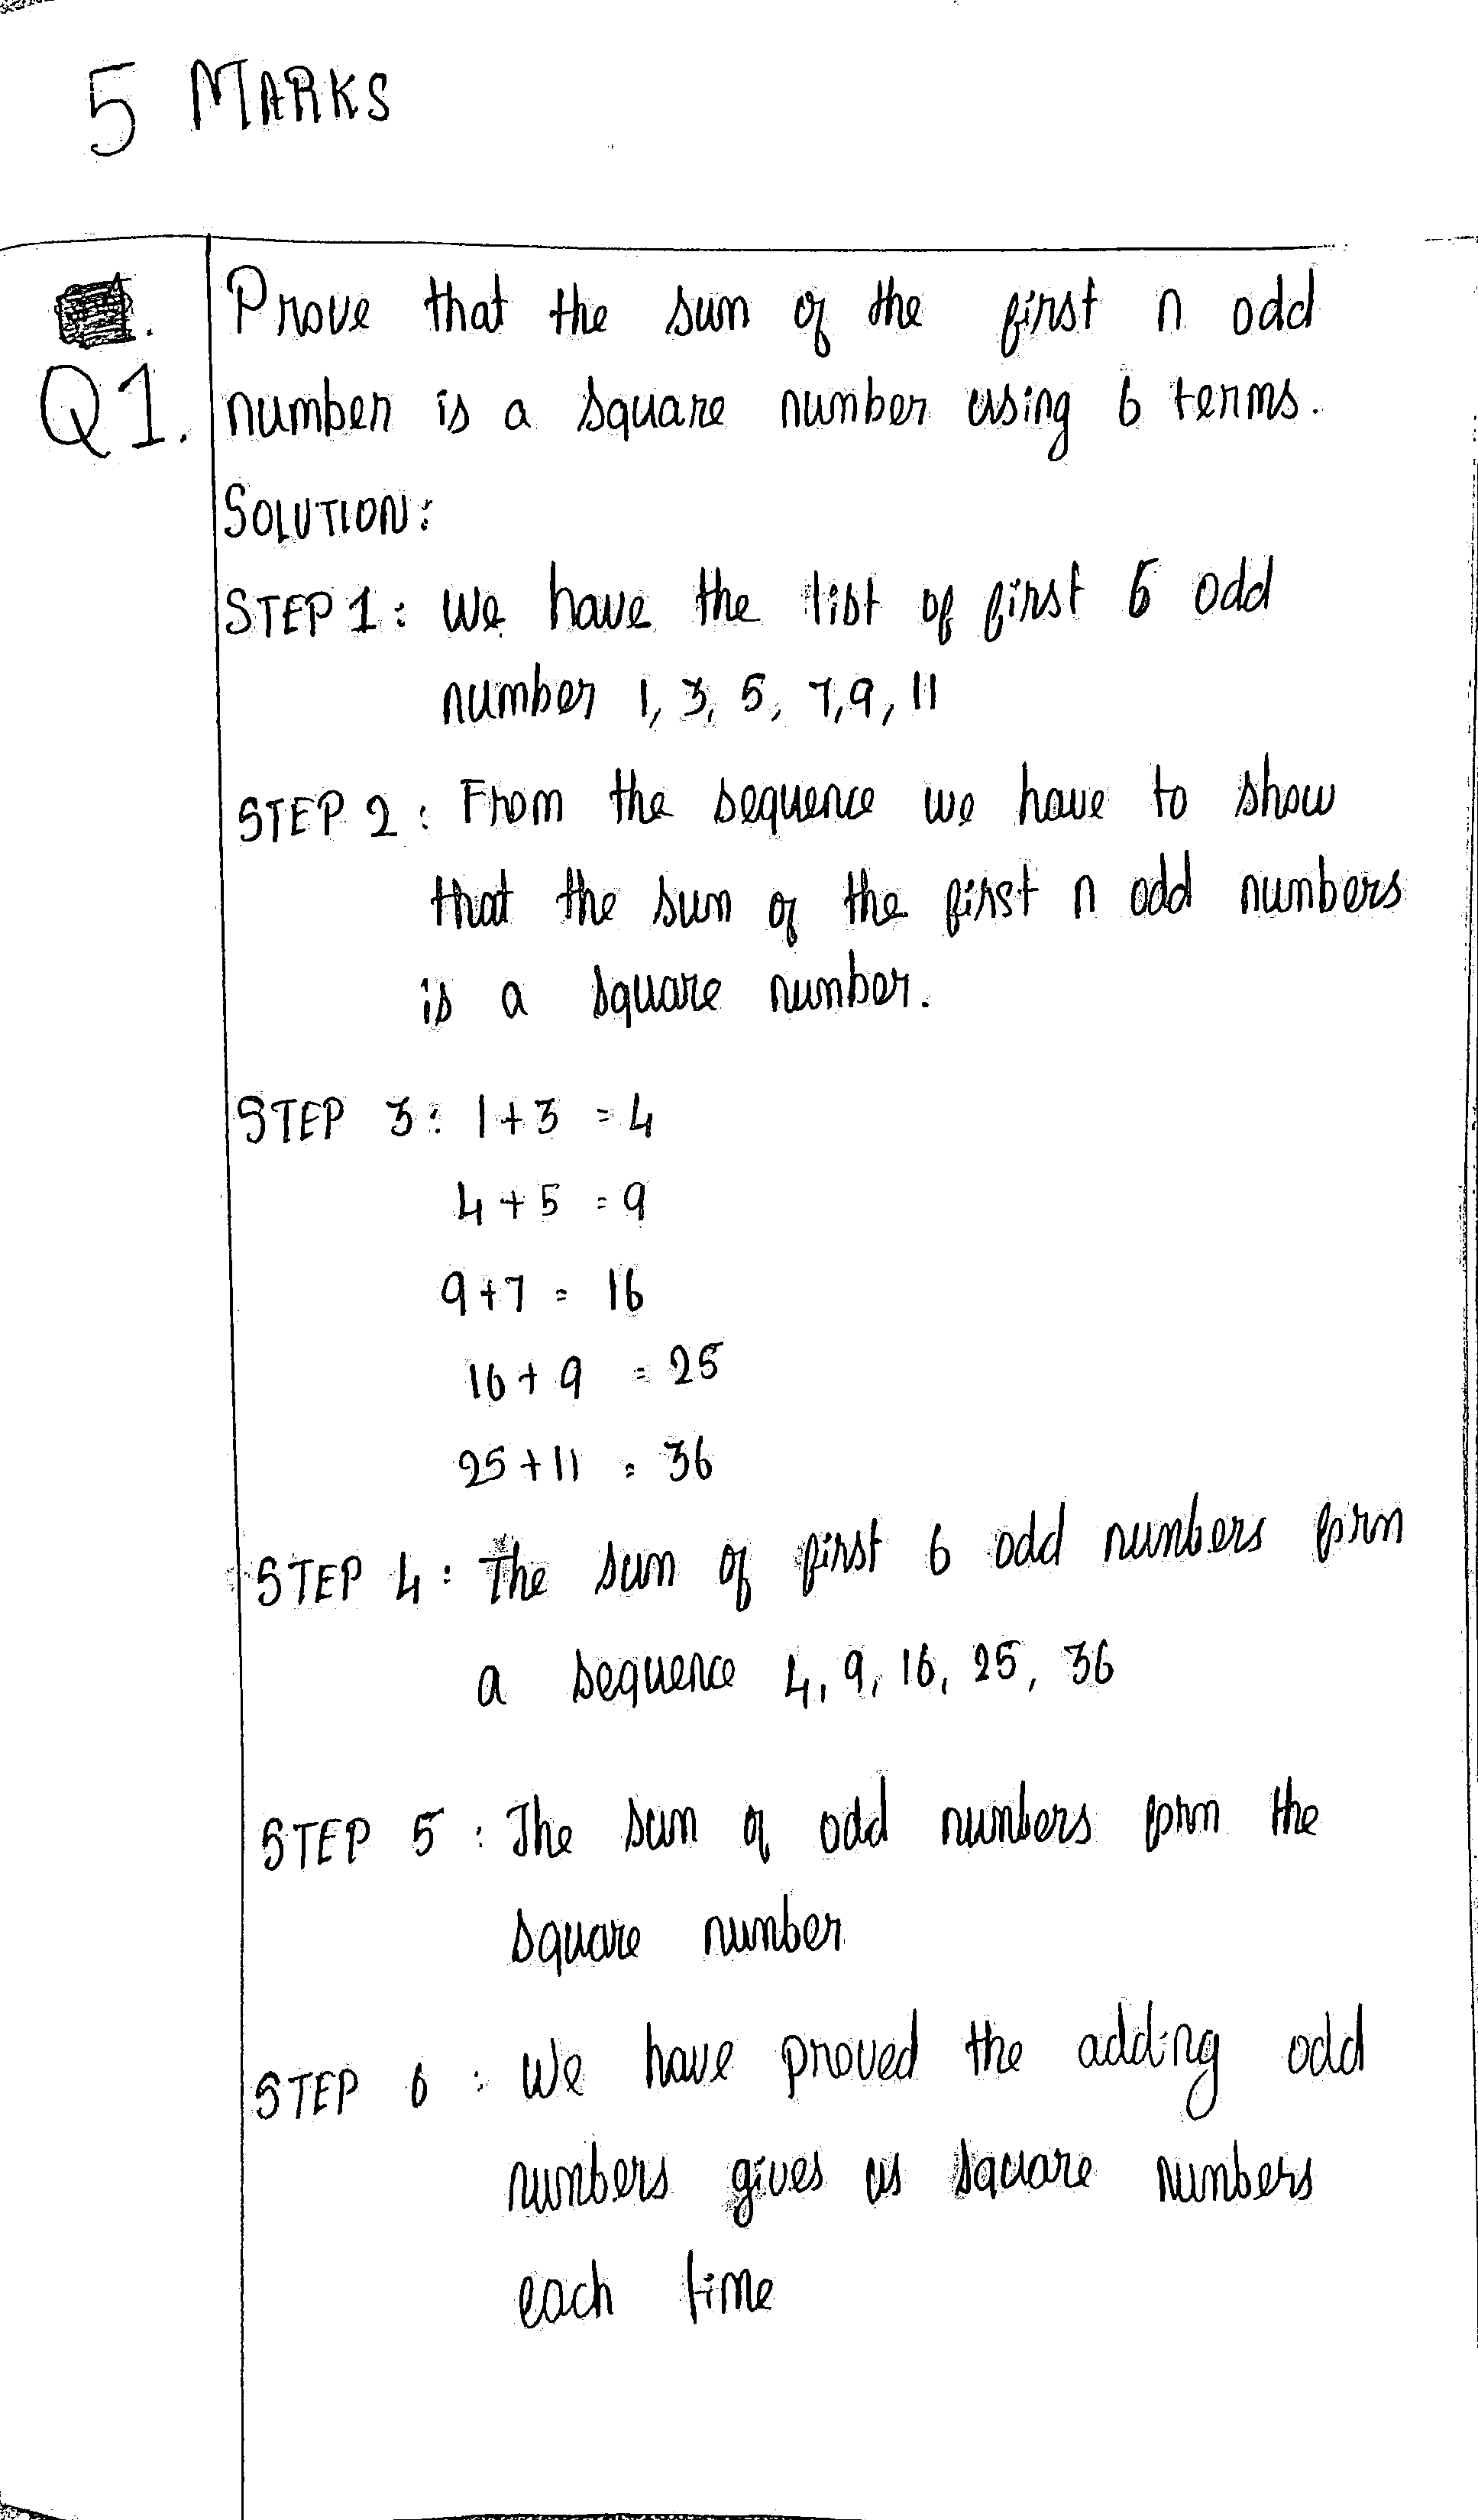 5 MARKS
Prove that the sum of the first n odd
Q1. number is a square number using 6 terms.
SOLUTION:
STEP 1: We have the list of first 6 odd
number 1, 3, 5, 7, 9, 11
STEP 2: From the sequence we have to show
that the sum of the first n odd numbers
is a square number.
STEP 3: 1+3 = 4
4+5 = 9
9+7 = 16
16+9 = 25
25+11 = 36
STEP 4: The sum of first 6 odd numbers form
a sequence 4, 9, 16, 25, 36
STEP 5: The sum of odd numbers form the
square number
STEP 6: We have proved the adding odd
numbers gives us square numbers
each time